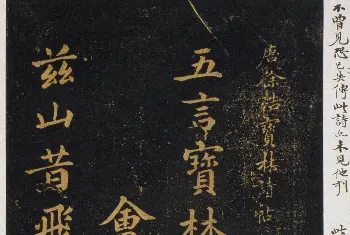 不曾見恐已失傳此詩亦未見他刻
唐徐浩寶林詩帖
五言寶林
會
茲山昔飛